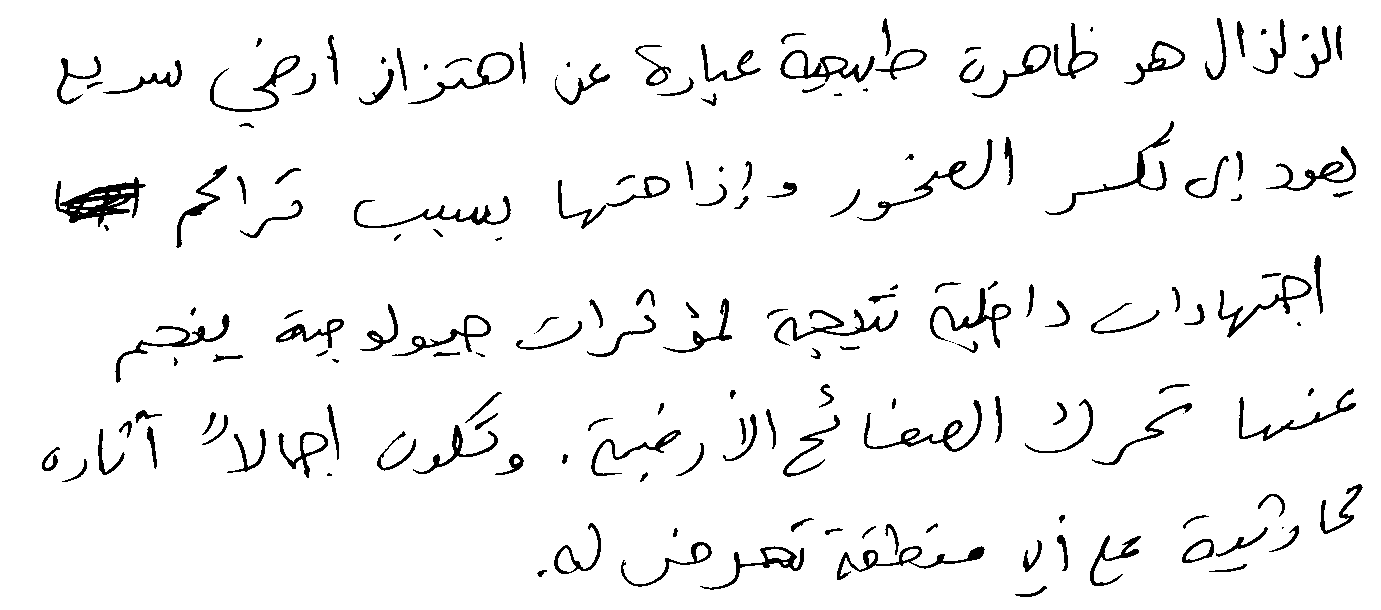 الزلزال هو ظاهرة طبيعية عبارة عن اهتزاز أرضي سريع
يعود إلى تكسر الصخور وإزاحتها بسبب تراكم
اجتهادات داخلية نتيجة لمؤثرات جيولوجية ينجم
عنها تحرك الصفائح الأرضية. وتكون إجمالاً آثاره
كارثية على أي منطقة تعرض له.